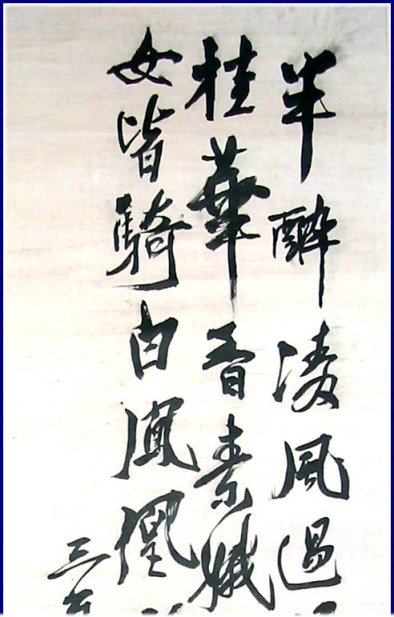 半醉凌風過
桂華香素娥
女皆騎白鳳凰
三